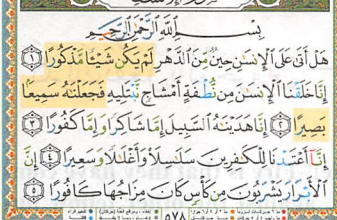 بِسْمِ اللَّهِ الرَّحْمَٰنِ الرَّحِيمِ
هَلْ أَتَىٰ عَلَى الْإِنسَٰنِ حِينٌ مِّنَ الدَّهْرِ لَمْ يَكُن شَيْـًٔا مَّذْكُورًا ١
إِنَّا خَلَقْنَا الْإِنسَٰنَ مِن نُّطْفَةٍ أَمْشَاجٍ نَّبْتَلِيهِ فَجَعَلْنَٰهُ سَمِيعًا
بَصِيرًا ٢ إِنَّا هَدَيْنَٰهُ السَّبِيلَ إِمَّا شَاكِرًا وَإِمَّا كَفُورًا ٣
إِنَّا أَعْتَدْنَا لِلْكَٰفِرِينَ سَلَٰسِلَا۟ وَأَغْلَٰلًا وَسَعِيرًا ٤ إِنَّ
الْأَبْرَارَ يَشْرَبُونَ مِن كَأْسٍ كَانَ مِزَاجُهَا كَافُورًا ٥
٥٧٨